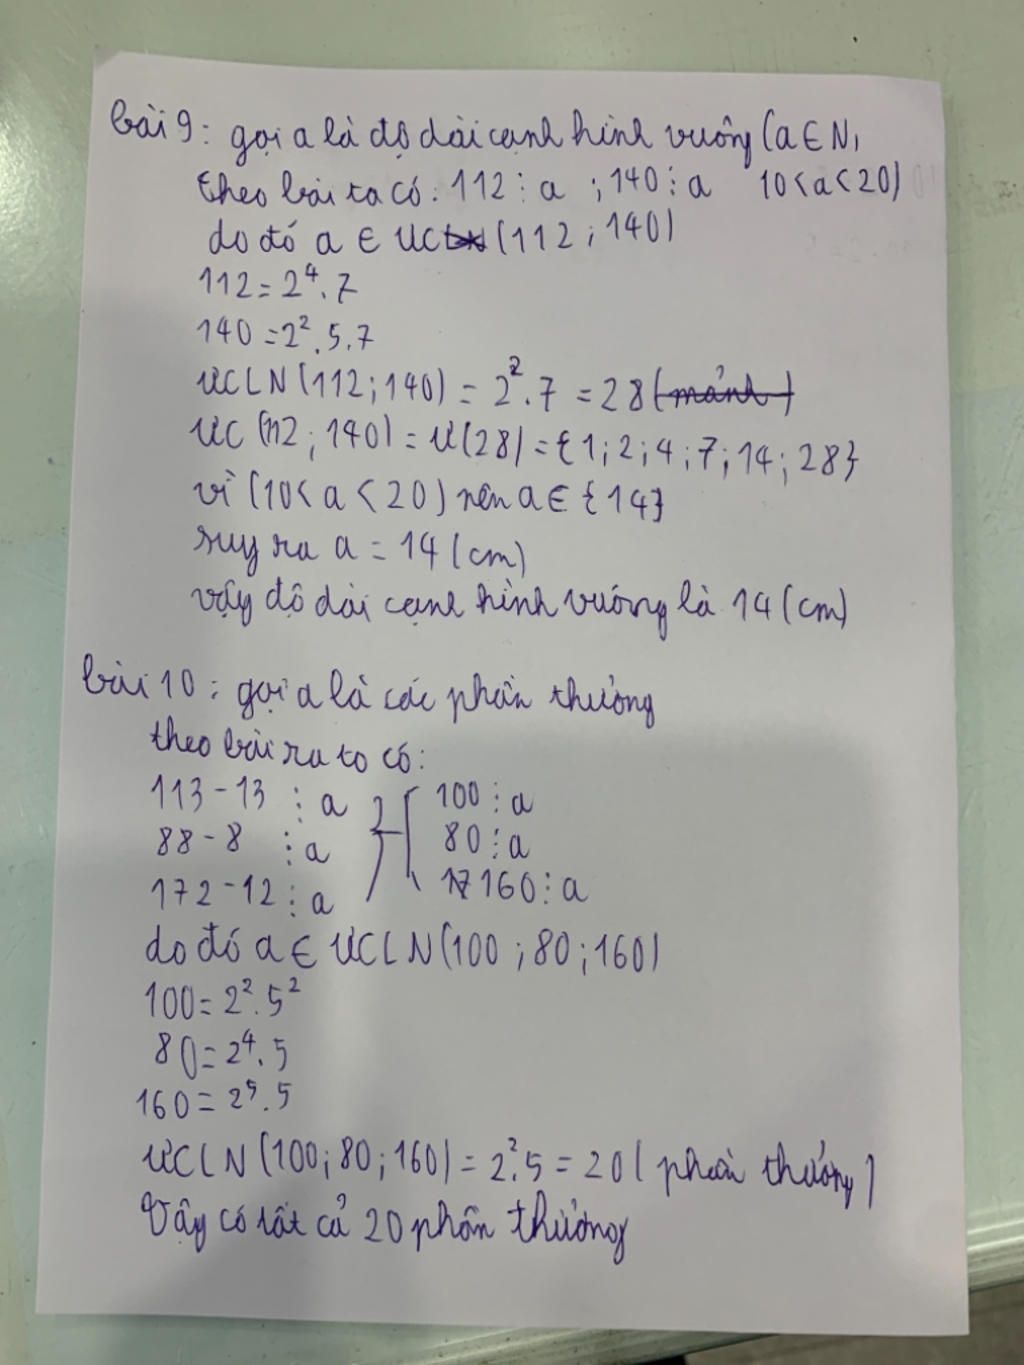 bài 9: gọi a là độ dài cạnh hình vuông (a ∈ N,
theo bài ta có: 112 ⋮ a ; 140 ⋮ a 10 < a < 20)
do đó a ∈ ƯC (112 ; 140)
112 = 2⁴.7
140 = 2².5.7
ƯCLN (112 ; 140) = 2².7 = 28 (mảnh)
ƯC (112 ; 140) = Ư(28) = {1 ; 2 ; 4 ; 7 ; 14 ; 28}
vì (10 < a < 20) nên a ∈ {14}
suy ra a = 14 (cm)
vậy độ dài cạnh hình vuông là 14 (cm)
bài 10 : gọi a là các phần thưởng
theo bài ra ta có:
113 - 13 ⋮ a } [ 100 ⋮ a
88 - 8 ⋮ a 80 ⋮ a
172 - 12 ⋮ a 160 ⋮ a
do đó a ∈ ƯCLN (100 ; 80 ; 160)
100 = 2².5²
80 = 2⁴.5
160 = 2⁵.5
ƯCLN (100 ; 80 ; 160) = 2².5 = 20 ( phần thưởng )
Vậy có tất cả 20 phần thưởng